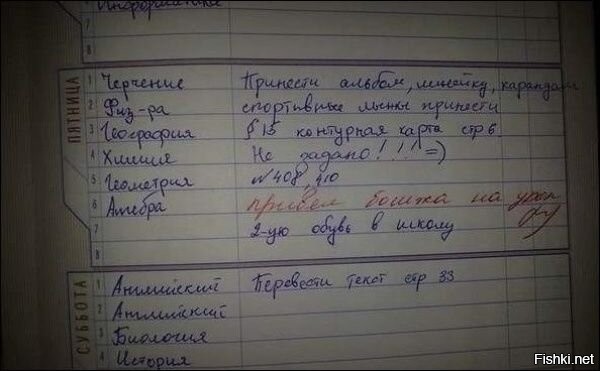 Информатика
7
8
ПЯТНИЦА
1 Черчение Принести альбом, линейку, карандаш
2 Физ-ра спортивные лыжы принести
3 География § 15 контурная карта стр 6
4 Химия Не задано!!!! =)
5 Геометрия №408, 410
6 Алгебра бошка на урок
7 2-ую обувь в школу
8
СУББОТА
1 Английский Перевести текст стр 33
2 Английский
3 Биология
4 История
Fishki.net